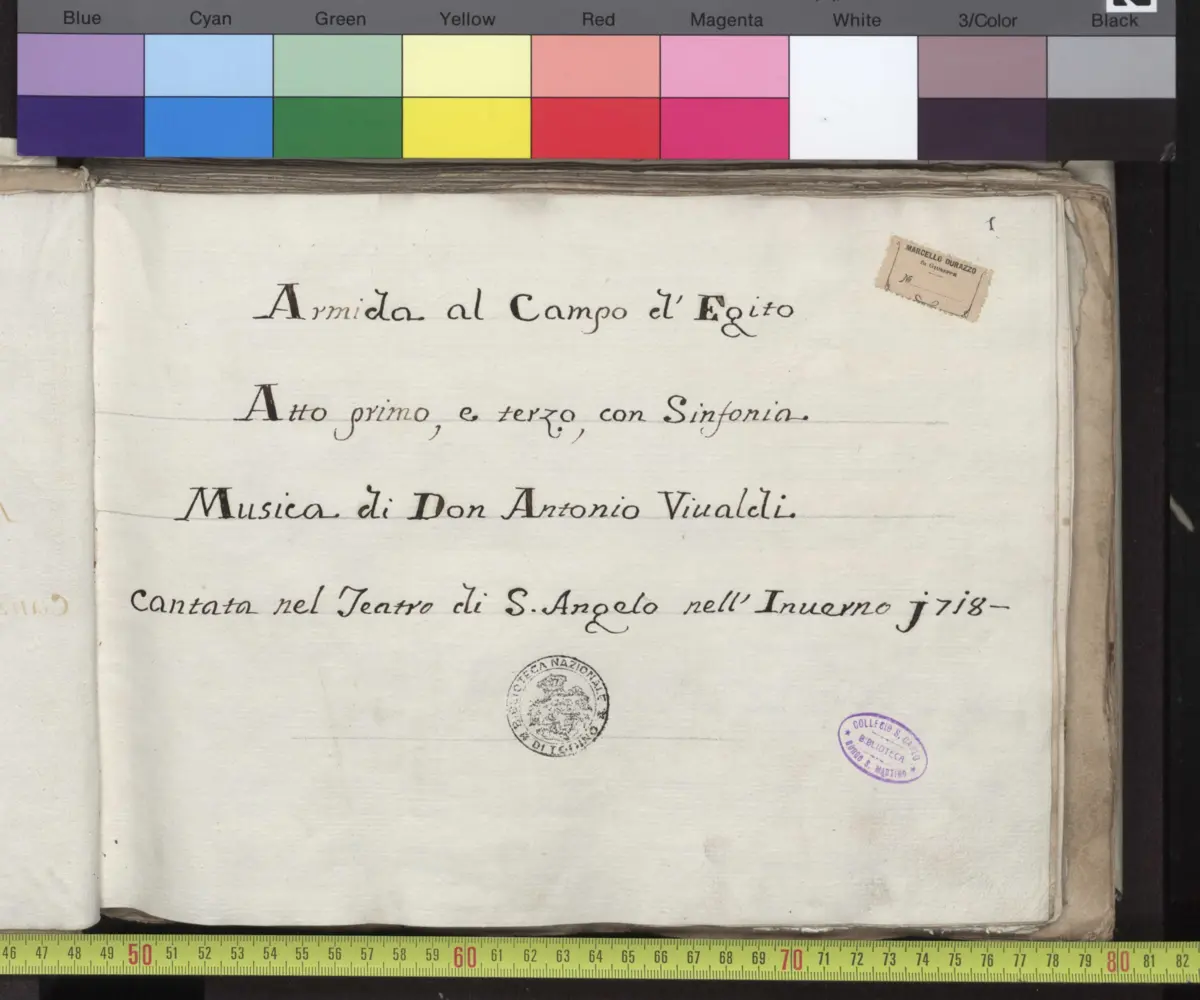 Blue Cyan Green Yellow Red Magenta White 3/Color Black
1
MARCELLO DURAZZO
№
Armida al Campo d' Egito
Atto primo, e terzo, con Sinfonia.
Musica di Don Antonio Viualdi.
Cantata nel Teatro di S. Angelo nell' Inuerno j7i8-
BIBLIOTECA NAZIONALE
DI TORINO
COLLEGIO S. CARLO
BIBLIOTECA
BORGO S. MARTINO
46 47 48 49 50 51 52 53 54 55 56 57 58 59 60 61 62 63 64 65 66 67 68 69 70 71 72 73 74 75 76 77 78 79 80 81 82